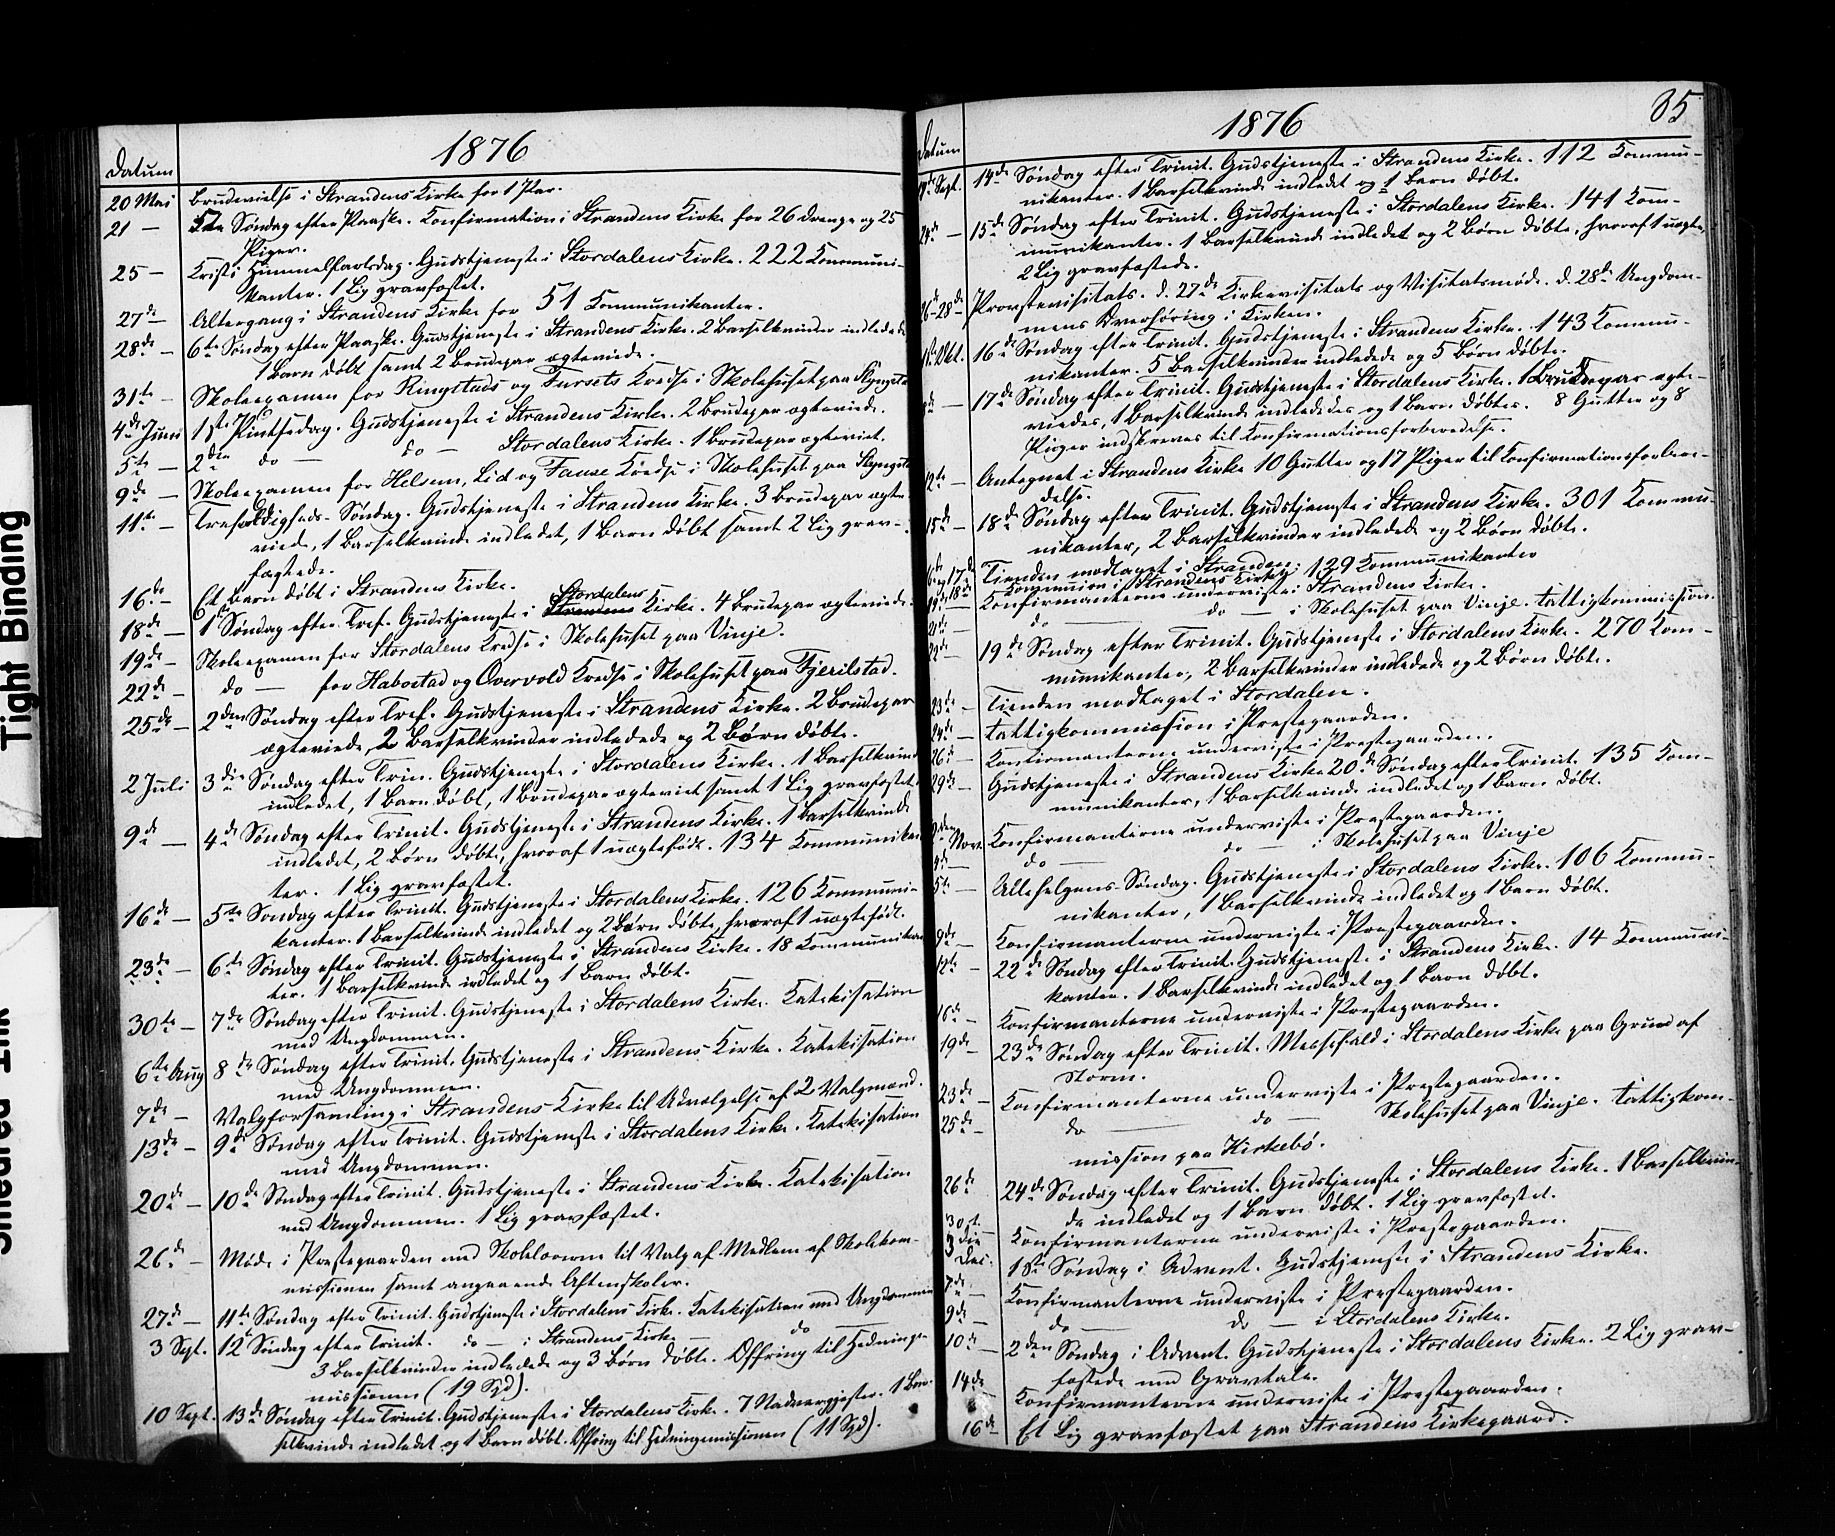 Tight Binding
Smeared Ink
1876
Datum
20 Mai Brudevielse i Strandens Kirke for 1 Par.
21 — 5te Søndag efter Paaske. Konfirmation i Strandens Kirke for 26 Drenge og 25
Piger.
25 — Kristi Himmelfartsdag. Gudstjeneste i Stordalens Kirke. 222 Kommuni-
kanter. 1 Lig gravfæstet.
27de — Altergang i Strandens Kirke for 51 Kommunikanter.
28de — 6te Søndag efter Paaske. Gudstjeneste i Strandens Kirke. 2 Barselkvinder indledede
1 Barn døbt samt 2 Brudepar ægteviede.
31te — Skoleexamen for Ringstads og Fursets Kredse i Skolehuset paa
4de Juni 1ste Pintsedag. Gudstjeneste i Strandens Kirke. 2 Brudepar ægteviede.
5te — 2den do — do — Stordalens Kirke. 1 Brudepar ægteviet.
9de — Skoleexamen for Helsem, Lid og Fause Kredse i Skolehuset paa
11te — Trefoldigheds-Søndag. Gudstjeneste i Strandens Kirke. 3 Brudepar ægte-
viede, 1 Barselkvinde indledet, 1 Barn døbt samt 2 Lig grav-
fæstede.
16de — Et Barn døbt i Strandens Kirke.
18de — 1ste Søndag efter Tref. Gudstjeneste i Strandens Stordalens Kirke. 4 Brudepar ægteviede.
19de — Skoleexamen for Stordalens Kredse i Skolehuset paa Vinje.
22de — do — for Habostad og Overvold Kredse i Skolehuset paa Fjerilstad.
25de — 2den Søndag efter Tref. Gudstjeneste i Strandens Kirke. 2 Brudepar
ægteviede, 2 Barselkvinder indledede og 2 Børn døbte.
2 Juli 3die Søndag efter Trin. Gudstjeneste i Stordalens Kirke. 1 Barselkvinde
indledet, 1 Barn døbt, 1 Brudepar ægteviet samt 1 Lig gravfæstet.
9de — 4de Søndag efter Trinit. Gudstjeneste i Strandens Kirke. 1 Barselkvinde
indledet, 2 Børn døbte, hvoraf 1 uægtefødt. 134 Kommunikan-
ter. 1 Lig gravfæstet.
16de — 5te Søndag efter Trinit. Gudstjeneste i Stordalens Kirke. 126 Kommuni-
kanter. 1 Barselkvinde indledet og 2 Børn døbte, hvoraf 1 uægtefødt.
23de — 6te Søndag efter Trinit. Gudstjeneste i Strandens Kirke. 18 Kommunikan-
ter. 1 Barselkvinde indledet og 1 Barn døbt.
30te — 7de Søndag efter Trinit. Gudstjeneste i Stordalens Kirke. Katekisation
med Ungdommen.
6te Aug 8de Søndag efter Trinit. Gudstjeneste i Strandens Kirke. Katekisation
med Ungdommen.
7de — Valgforsamling i Strandens Kirke til Udvælgelse af 2 Valgmænd.
13de — 9de Søndag efter Trinit. Gudstjeneste i Stordalens Kirke. Katekisation
med Ungdommen.
20de — 10de Søndag efter Trinit. Gudstjeneste i Strandens Kirke. Katekisation
med Ungdommen. 1 Lig gravfæstet.
26de — Møde i Prestegaarden med Skolelærerne til Valg af Medlem af Skolekom-
missionen samt angaaende Aftenskoler.
27de — 11te Søndag efter Trinit. Gudstjeneste i Stordalens Kirke. Katekisation med Ungdommen
3 Sept. 12te Søndag efter Trinit. do — i Strandens Kirke — do —
3 Barselkvinder indledede og 3 Børn døbte. Offring til Hedninge-
missionen (19 Spd).
10 Sept. 13de Søndag efter Trinit. Gudstjeneste i Stordalens Kirke. 7 Nadvergjester. 1 Bar-
selkvinde indledet og 1 Barn døbt. Offring til Hedningemissionen (11 Spd).
1876
35
Datum
17de Sept. 14de Søndag efter Trinit. Gudstjeneste i Strandens Kirke. 112 Kommu-
nikanter. 1 Barselkvinde indledet og 1 Barn døbt.
24de — 15de Søndag efter Trinit. Gudstjeneste i Stordalens Kirke. 141 Kom-
munikanter. 1 Barselkvinde indledet og 2 Børn døbte, hvoraf 1 uægte,
2 Lig gravfæstede.
26de-28de Provstevisitats. d. 27de Kirkevisitats og Visitatsmøde. d. 28de Ungdom-
mens Overhøring i Kirken.
1ste Okt. 16de Søndag efter Trinit. Gudstjeneste i Strandens Kirke. 143 Kommu-
nikanter. 5 Barselkvinder indledede og 5 Børn døbte.
8de — 17de Søndag efter Trinit. Gudstjeneste i Stordalens Kirke. 1 Brudepar ægte-
viedes, 1 Barselkvinde indlededes og 1 Barn døbtes. 8 Gutter og 8
Piger indskreves til Konfirmationsforberedelse.
12te — Antegnet i Strandens Kirke 10 Gutter og 17 Piger til Konfirmationsforbere-
delse.
15de — 18de Søndag efter Trinit. Gudstjeneste i Strandens Kirke. 301 Kommu-
nikanter, 2 Barselkvinder indledede og 2 Børn døbte.
16de og 17de Tienden modtaget i Stranden.
18de Kommunion i Strandens Kirke; 129 Kommunikanter
19de Konfirmanterne underviste i Strandens Kirke.
21de — do — do — i Skolehuset paa Vinje. Fattigkommission.
22de — 19de Søndag efter Trinit. Gudstjeneste i Stordalens Kirke. 270 Kom-
munikanter, 2 Barselkvinder indledede og 2 Børn døbte.
23de — Tienden modtaget i Stordalen.
24de — Fattigkommission i Prestegaarden.
26de — Konfirmanterne underviste i Prestegaarden.
29de Gudstjeneste i Strandens Kirke 20de Søndag efter Trinit. 135 Kom-
munikanter, 1 Barselkvinde indledet og 1 Barn døbt.
2den Nov. Konfirmanterne underviste i Prestegaarden.
4de — do — do — i Skolehuset paa Vinje
5te — Allehelgens-Søndag. Gudstjeneste i Stordalens Kirke. 106 Kommu-
nikanter, 1 Barselkvinde indledet og 1 Barn døbt.
9de — Konfirmanterne underviste i Prestegaarden.
12te — 22de Søndag efter Trinit. Gudstjeneste i Strandens Kirke. 14 Kommuni-
kanter. 1 Barselkvinde indledet og 1 Barn døbt.
16de — Konfirmanterne underviste i Prestegaarden.
19de — 23de Søndag efter Trinit. Messefald i Stordalens Kirke paa Grund af
Storm.
23de — Konfirmanterne underviste i Prestegaarden.
25de — do — do — Skolehuset paa Vinje. Fattigkom-
mission paa Kirkebø.
26de — 24de Søndag efter Trinit. Gudstjeneste i Stordalens Kirke. 1 Barselkvin-
de indledet og 1 Barn døbt. 1 Lig gravfæstet.
30te Konfirmanterne underviste i Prestegaarden.
3die Dec. 1ste Søndag i Advent. Gudstjeneste i Strandens Kirke.
7de — Konfirmanterne underviste i Prestegaarden.
9de — do — do — i Stordalens Kirke.
10de — 2den Søndag i Advent. Gudstjeneste i Stordalens Kirke. 2 Lig grav-
fæstede med Gravtale.
14de Konfirmanterne underviste i Prestegaarden.
16de Et Lig gravfæstet paa Strandens Kirkegaard.